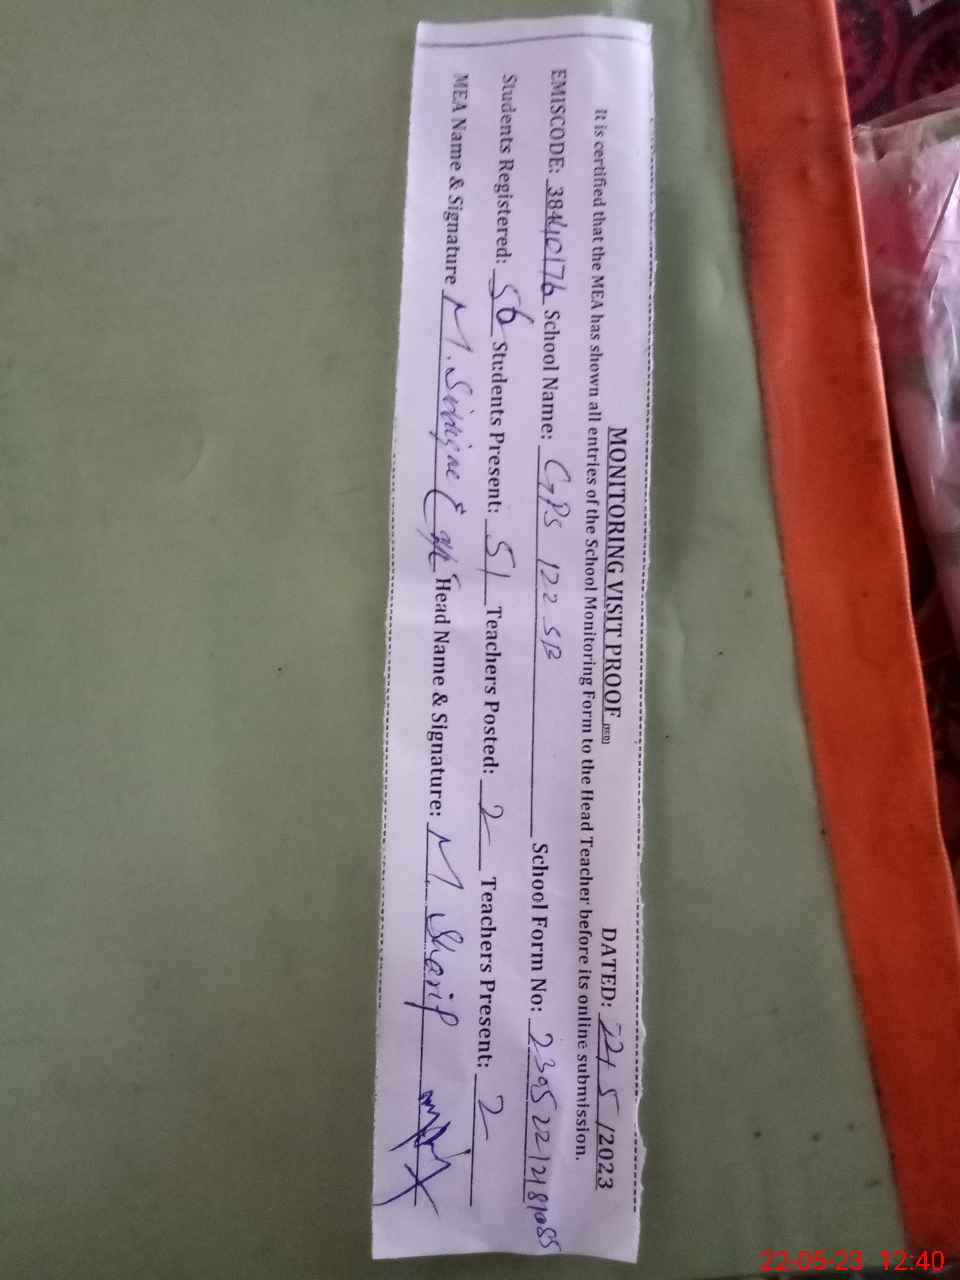 MONITORING VISIT PROOF DATED: 22/ 5 /2023
It is certified that the MEA has shown all entries of the School Monitoring Form to the Head Teacher before its online submission.
EMISCODE: 38440176 School Name: GPS 122 SB School Form No:
Students Registered: 56 Students Present: 51 Teachers Posted: 2 Teachers Present: 2
MEA Name & Signature M. Siddique Head Name & Signature: M Sharif
22-05-23 12:40